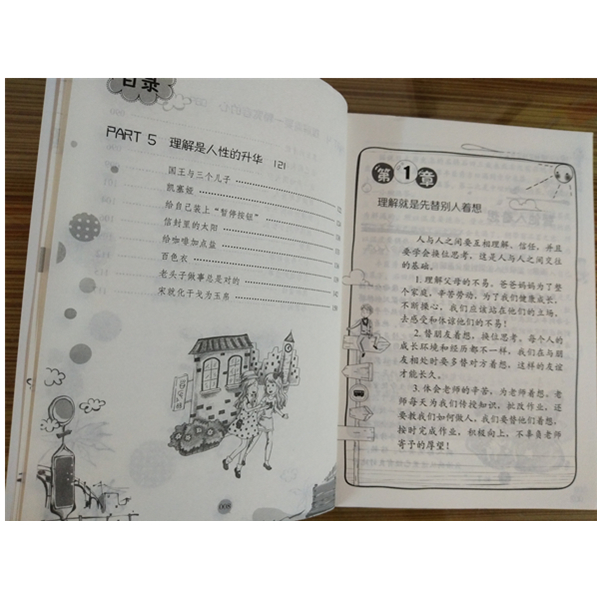 目录
PART 5 理解是人性的升华 121
国王与三个儿子
凯塞娅
给自己装上“暂停按钮”
信封里的太阳
给咖啡加点盐
百色衣
老头子做事总是对的
宋就化干戈为玉帛
800
第1章
理解就是先替别人着想
人与人之间要互相理解、信任，并且
要学会换位思考，这是人与人之间交往
的基础。
1.理解父母的不易，爸爸妈妈为了整
个家庭，辛苦劳动，为了我们健康成长，
不断操心，我们应该站在他们的立场，
去感受和体谅他们的不易！
2.替朋友着想，换位思考，每个人的
成长环境和经历都不一样，我们在与朋
友相处时要多替对方着想，这样的友谊
才能长久。
3.体会老师的辛苦，为老师着想，老
师每天为我们传授知识，批改作业，还
要教我们如何做人，我们要替他们着想，
按时完成作业，积极向上，不辜负老师
寄予的厚望！